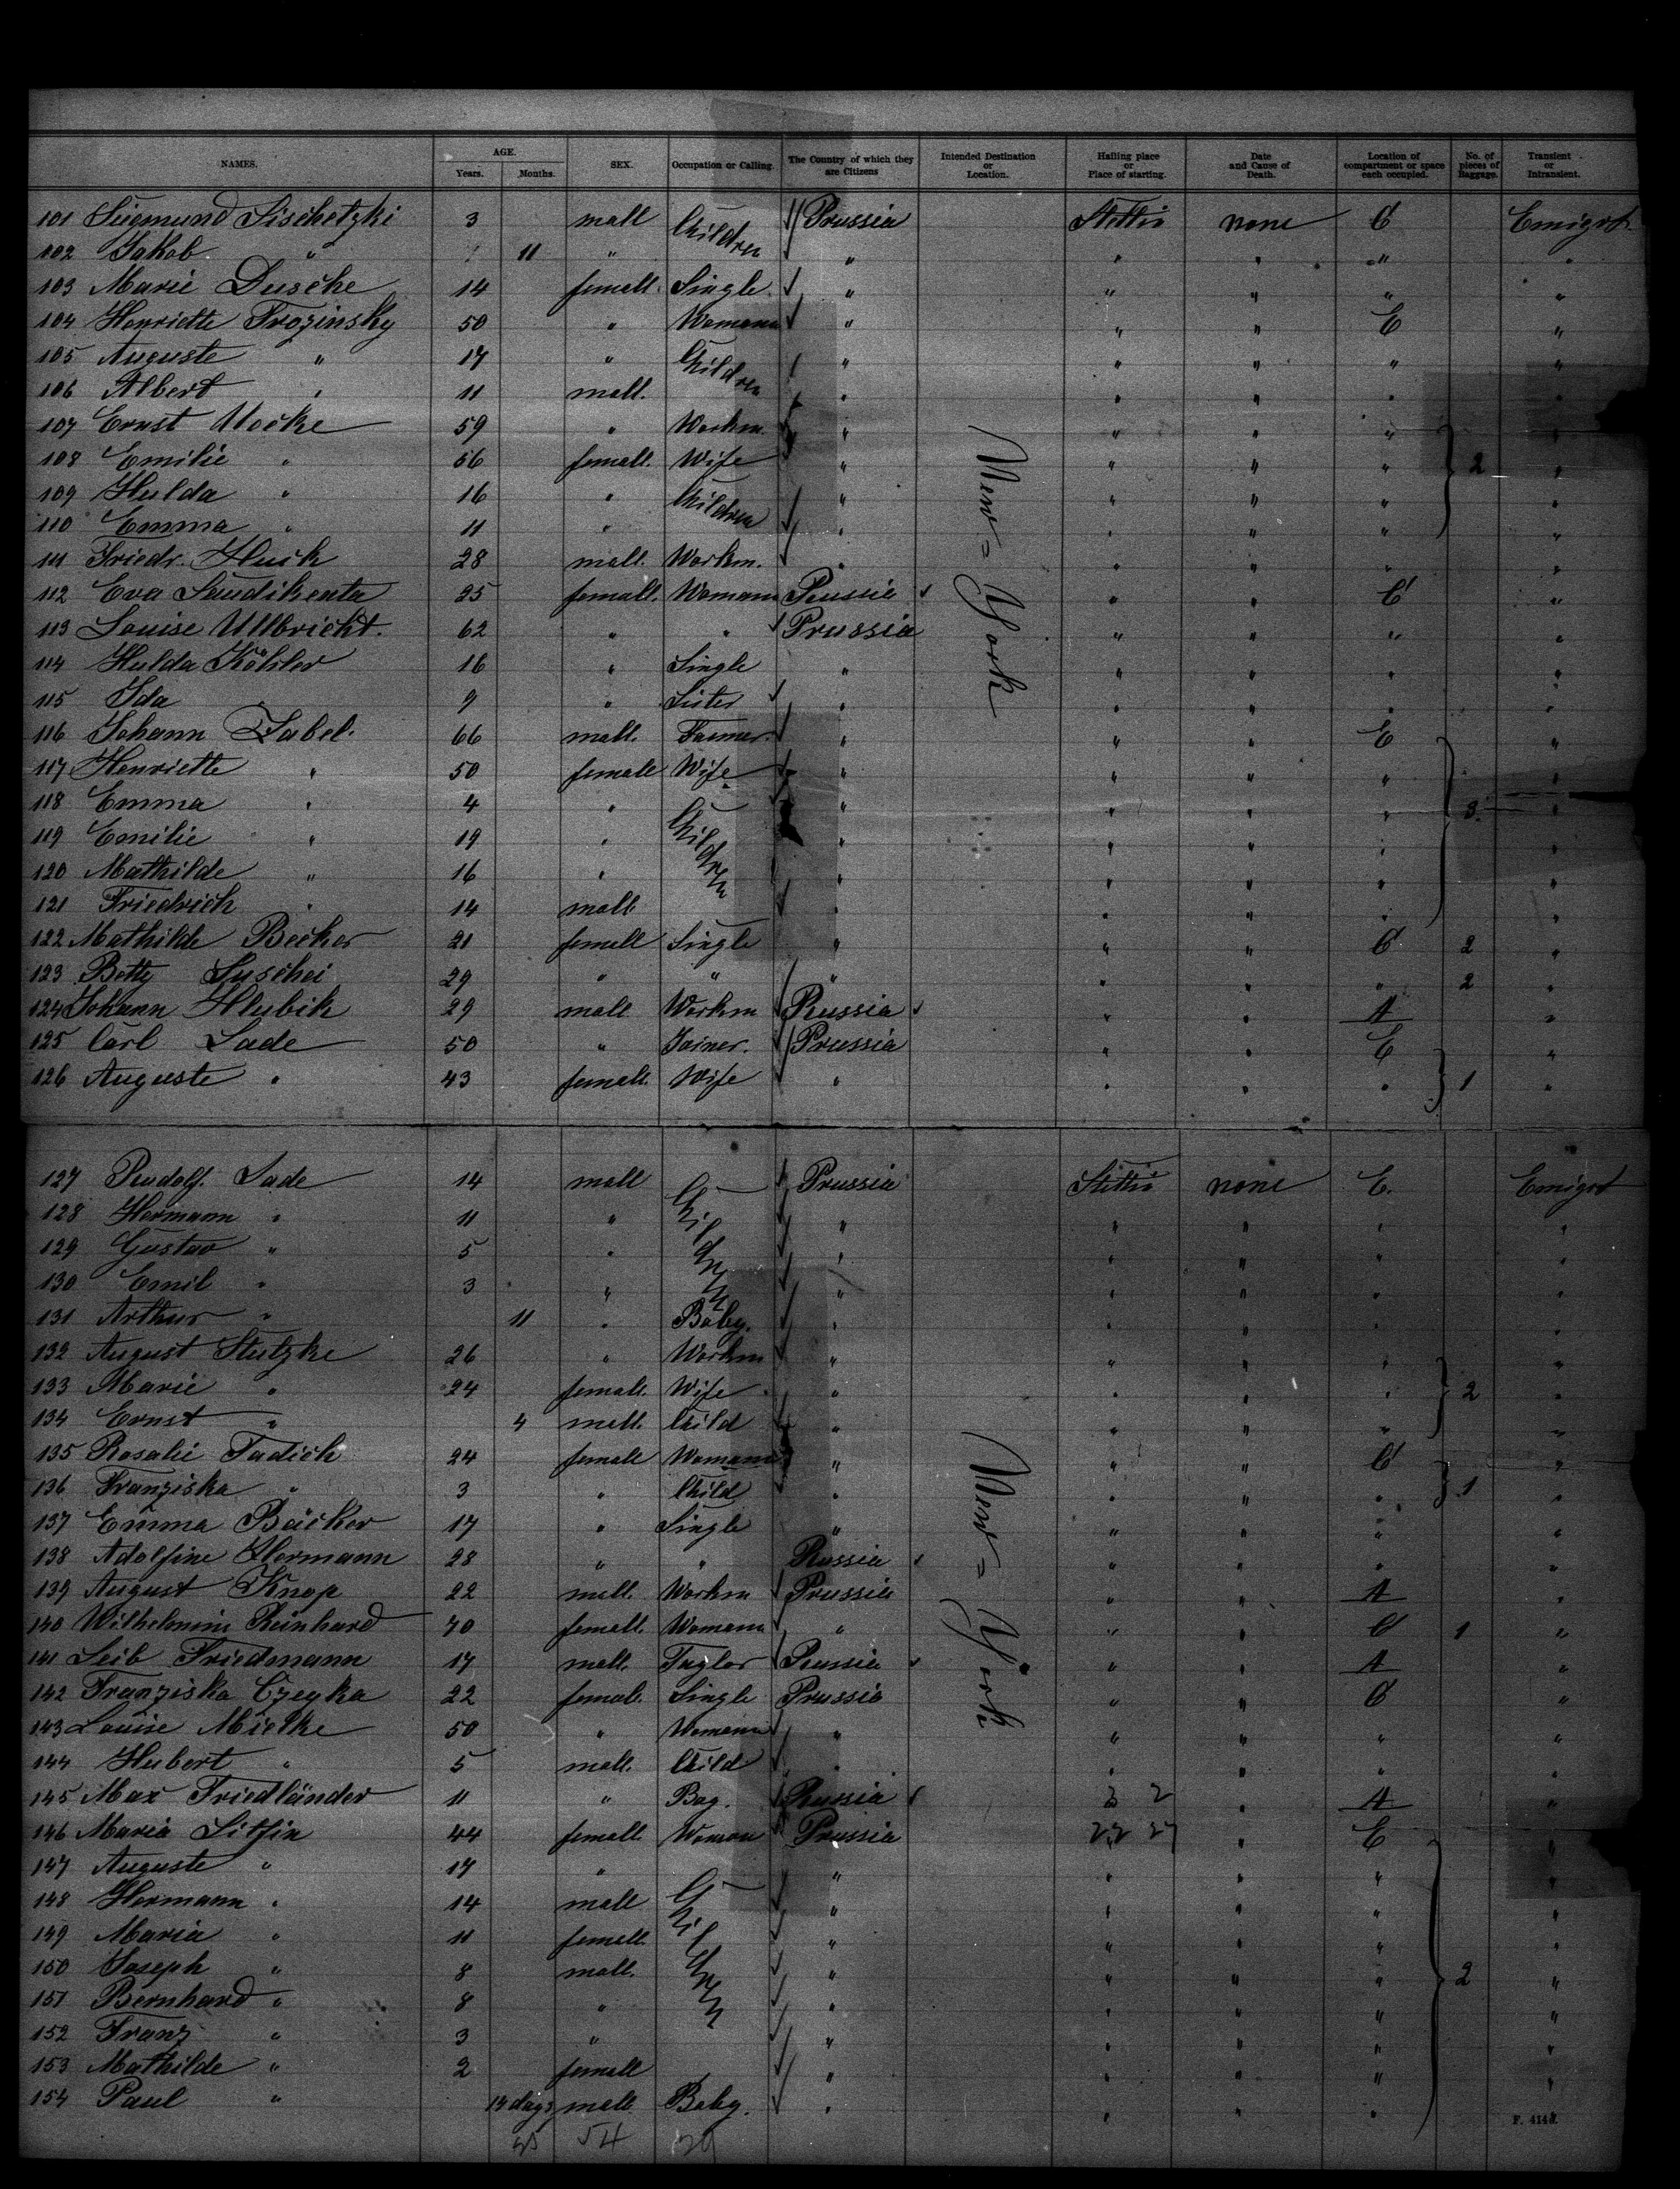 NAMES. AGE. SEX. Occupation or Calling. The Country of which they are Citizens Intended Destination or Location. Hailing place or Place of starting. Date and Cause of Death. Location of compartment or space each occupied. No. of pieces of Baggage. Transient or Intransient.
Years. Months.
101 Siegmund Lischetzki 3 mall Children Prussia Stettin none C Emigrt
102 Jakob " 11 " " " " " "
103 Marie Dusche 14 femall Single " " " " "
104 Henriette Trozinsky 50 " Womann " " " E "
105 Auguste " 17 " Children " " " " "
106 Albert " 11 mall. " " " " "
107 Ernst Mocke 59 " Workm. " " " " "
108 Emilie " 56 femall. Wife " " " " 2 "
109 Hulda " 16 " Children " " " " "
110 Emma " 11 " " " " " "
111 Friedr. Huck 28 mall. Workm. " " " " "
112 Eva 25 femall. Womann Russia " " C "
113 Louise Ullbricht. 62 " " Prussia " " " "
114 Hulda Köhler 16 " Single " " " " "
115 Ida " 9 " Sister " " " " "
116 Johann Zabel. 66 mall. Farmer. " " " E "
117 Henriette " 50 femall Wife " " " " "
118 Emma " 4 " Children " " " " 3. "
119 Emilie " 19 " " " " " "
120 Mathilde " 16 " " " " " "
121 Friedrich " 14 mall " " " " "
122 Mathilde Becker 21 femall Single " " " C 2 "
123 Betty Luschei 29 " " " " " " 2 "
124 Johann Hlubik 29 mall Workm Russia " " A "
125 Carl Lade 50 " Joiner. Prussia " " E "
126 Auguste " 43 femall. Wife " " " " 1 "
New-York
127 Rudolf. Lade 14 mall Children Prussia Stettin none E. Emigrt
128 Hermann " 11 " " " " " "
129 Gustav " 5 " " " " " "
130 Emil " 3 " " " " " "
131 Arthur " 11 " Baby. " " " " "
132 August Stutzke 26 " Workm " " " " "
133 Marie " 24 femall. Wife " " " " 2 "
134 Ernst " 4 mall. Child " " " " "
135 Rosalie Tadich 24 femall Womann " " " C "
136 Franziska " 3 " Child " " " " 1 "
137 Emma Bäcker 17 " Single " " " " "
138 Adolfine Hermann 28 " " Russia " " " "
139 August Knop 22 mall. Workm Prussia " " A "
140 Wilhelmine Reinhard 70 femall. Womann " " " C 1 "
141 Leib Friedmann 17 mall. Taylor Russia " " A "
142 Franziska Czeyka 22 femall. Single Prussia " " C "
143 Louise Mielke 50 " Womann " " " " "
144 Hubert " 5 mall. Child " " " " "
145 Max Friedländer 11 " Boy. Russia 3 2 " A "
146 Maria Litfin 44 femall. Woman Prussia 22 27 " E "
147 Auguste " 17 " Children " " " " "
148 Hermann " 14 mall " " " " "
149 Maria " 11 femall. " " " " "
150 Joseph " 8 mall. " " " " 2 "
151 Bernhard " 8 " " " " " "
152 Franz " 3 " " " " " "
153 Mathilde " 2 femall " " " " "
154 Paul " 14 days mall. Baby. " " " "
New-York
54
F. 4143.